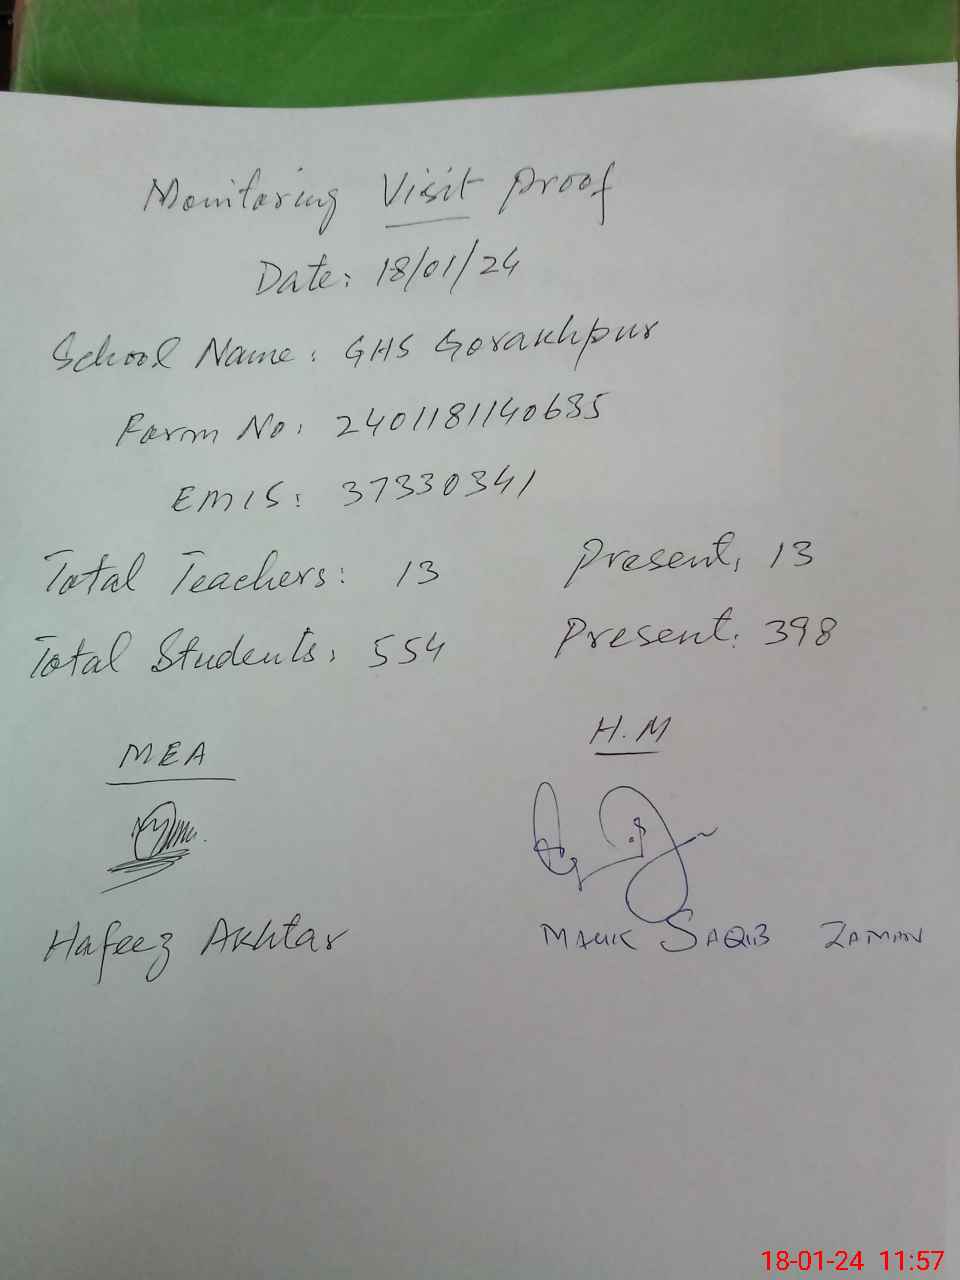 Monitoring Visit Proof
Date: 18/01/24
School Name: GHS Gorakhpur
Farm No: 2401181140635
EMIS: 37330341
Total Teachers: 13 Present: 13
Total Students: 554 Present: 398
MEA H.M
Hafeez Akhtar MALIK SAQIB ZAMAN
18-01-24 11:57